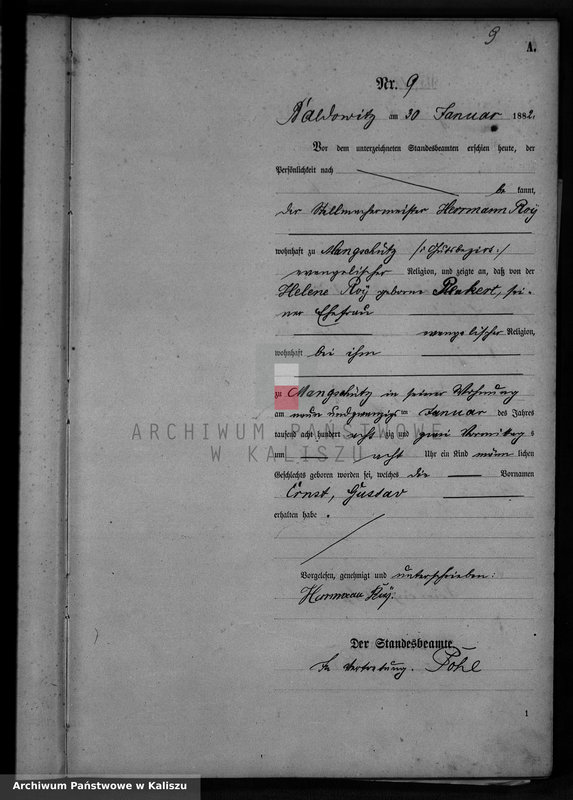 9
A.
Nr. 9
Baldowitz am 30 Januar 1882.
Vor dem unterzeichneten Standesbeamten erschien heute, der
Persönlichkeit nach
be kannt,
der Stellmachermeister Herrmann Roÿ
wohnhaft zu Mangschütz /: Gutsbezirk :/
evangelischer Religion, und zeigte an, daß von der
Helene Roÿ geborne sei-
ner Ehefrau
evangelischer Religion,
wohnhaft bei ihm
zu Mangschütz in seiner Wohnung
am neun und zwanzigsten Januar des Jahres
tausend acht hundert acht zig und zwei Vormittags
um acht Uhr ein Kind männ lichen
Geschlechts geboren worden sei, welches die Vornamen
Ernst, Gustav
erhalten habe.
Vorgelesen, genehmigt und unterschrieben:
Herrmann Roÿ.
Der Standesbeamte
In Vertretung. Pohl
1
ARCHIWUM PAŃSTWOWE
W KALISZU
Archiwum Państwowe w Kaliszu